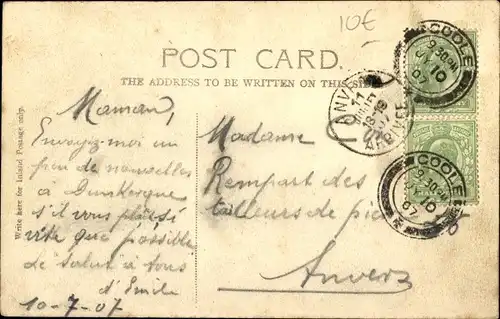 10€
POST CARD.
THE ADDRESS TO BE WRITTEN ON THIS SIDE
Write here for Inland Postage only.
Maman,
Envoyez-moi un
peu de nouvelles
a Dunkerque
s'il vous plait, si
vite que possible
de salut à tous
d'Emile
10-7-07
Madame
Rempart des
tailleurs de pie
Anvers
GOOLE
9.30PM
JY 10
07
ANVE
11
07
ARRIVEE
GOOLE
9.30PM
JY 10
07